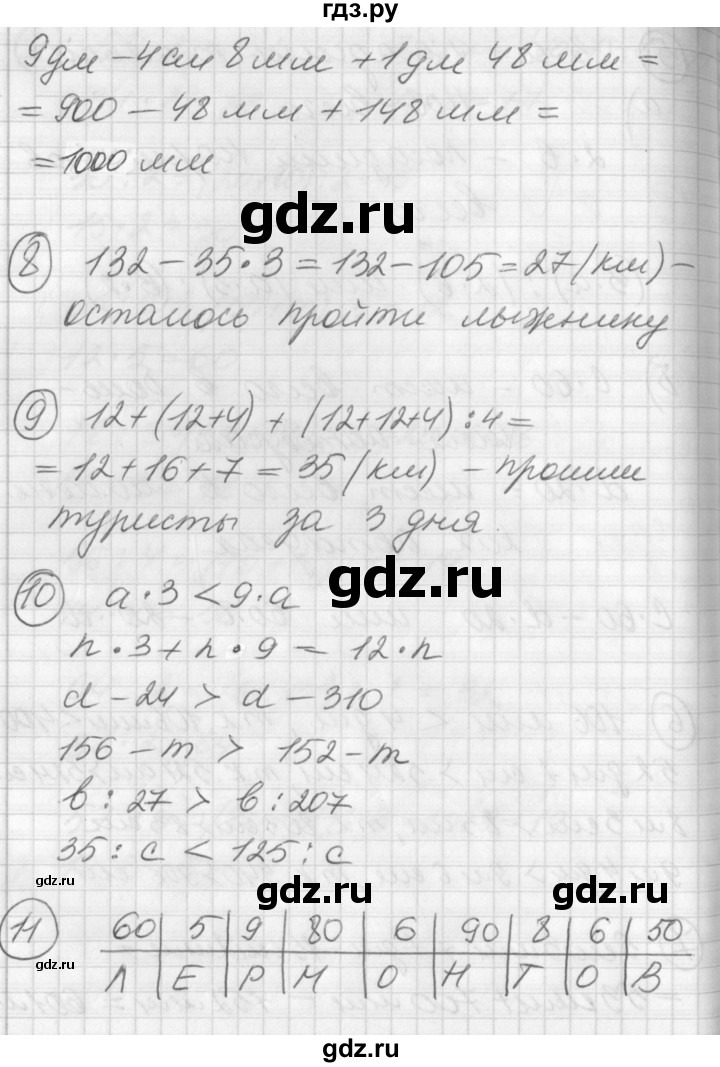 гдз.ру
9дм - 4см 8мм + 1дм 48мм =
= 900 - 48мм + 148мм =
= 1000 мм
gdz.ru
8 132 - 35·3 = 132 - 105 = 27 (км) -
осталось пройти лыжнику
9 12+(12+4) + (12+12+4):4 =
= 12+16+7 = 35 (км) - прошли
туристы за 3 дня
gdz.ru
10 a·3 < 9·a
n·3 + n·9 = 12·n
d - 24 > d - 310
156 - m > 152 - m
в : 27 > в : 207
35 : c < 125 : c
gdz.ru gdz.ru gdz.ru
11 60 | 5 | 9 | 80 | 6 | 90 | 8 | 6 | 50
Л | Е | Р | М | О | Н | Т | О | В
gdz.ru gdz.ru
gdz.ru